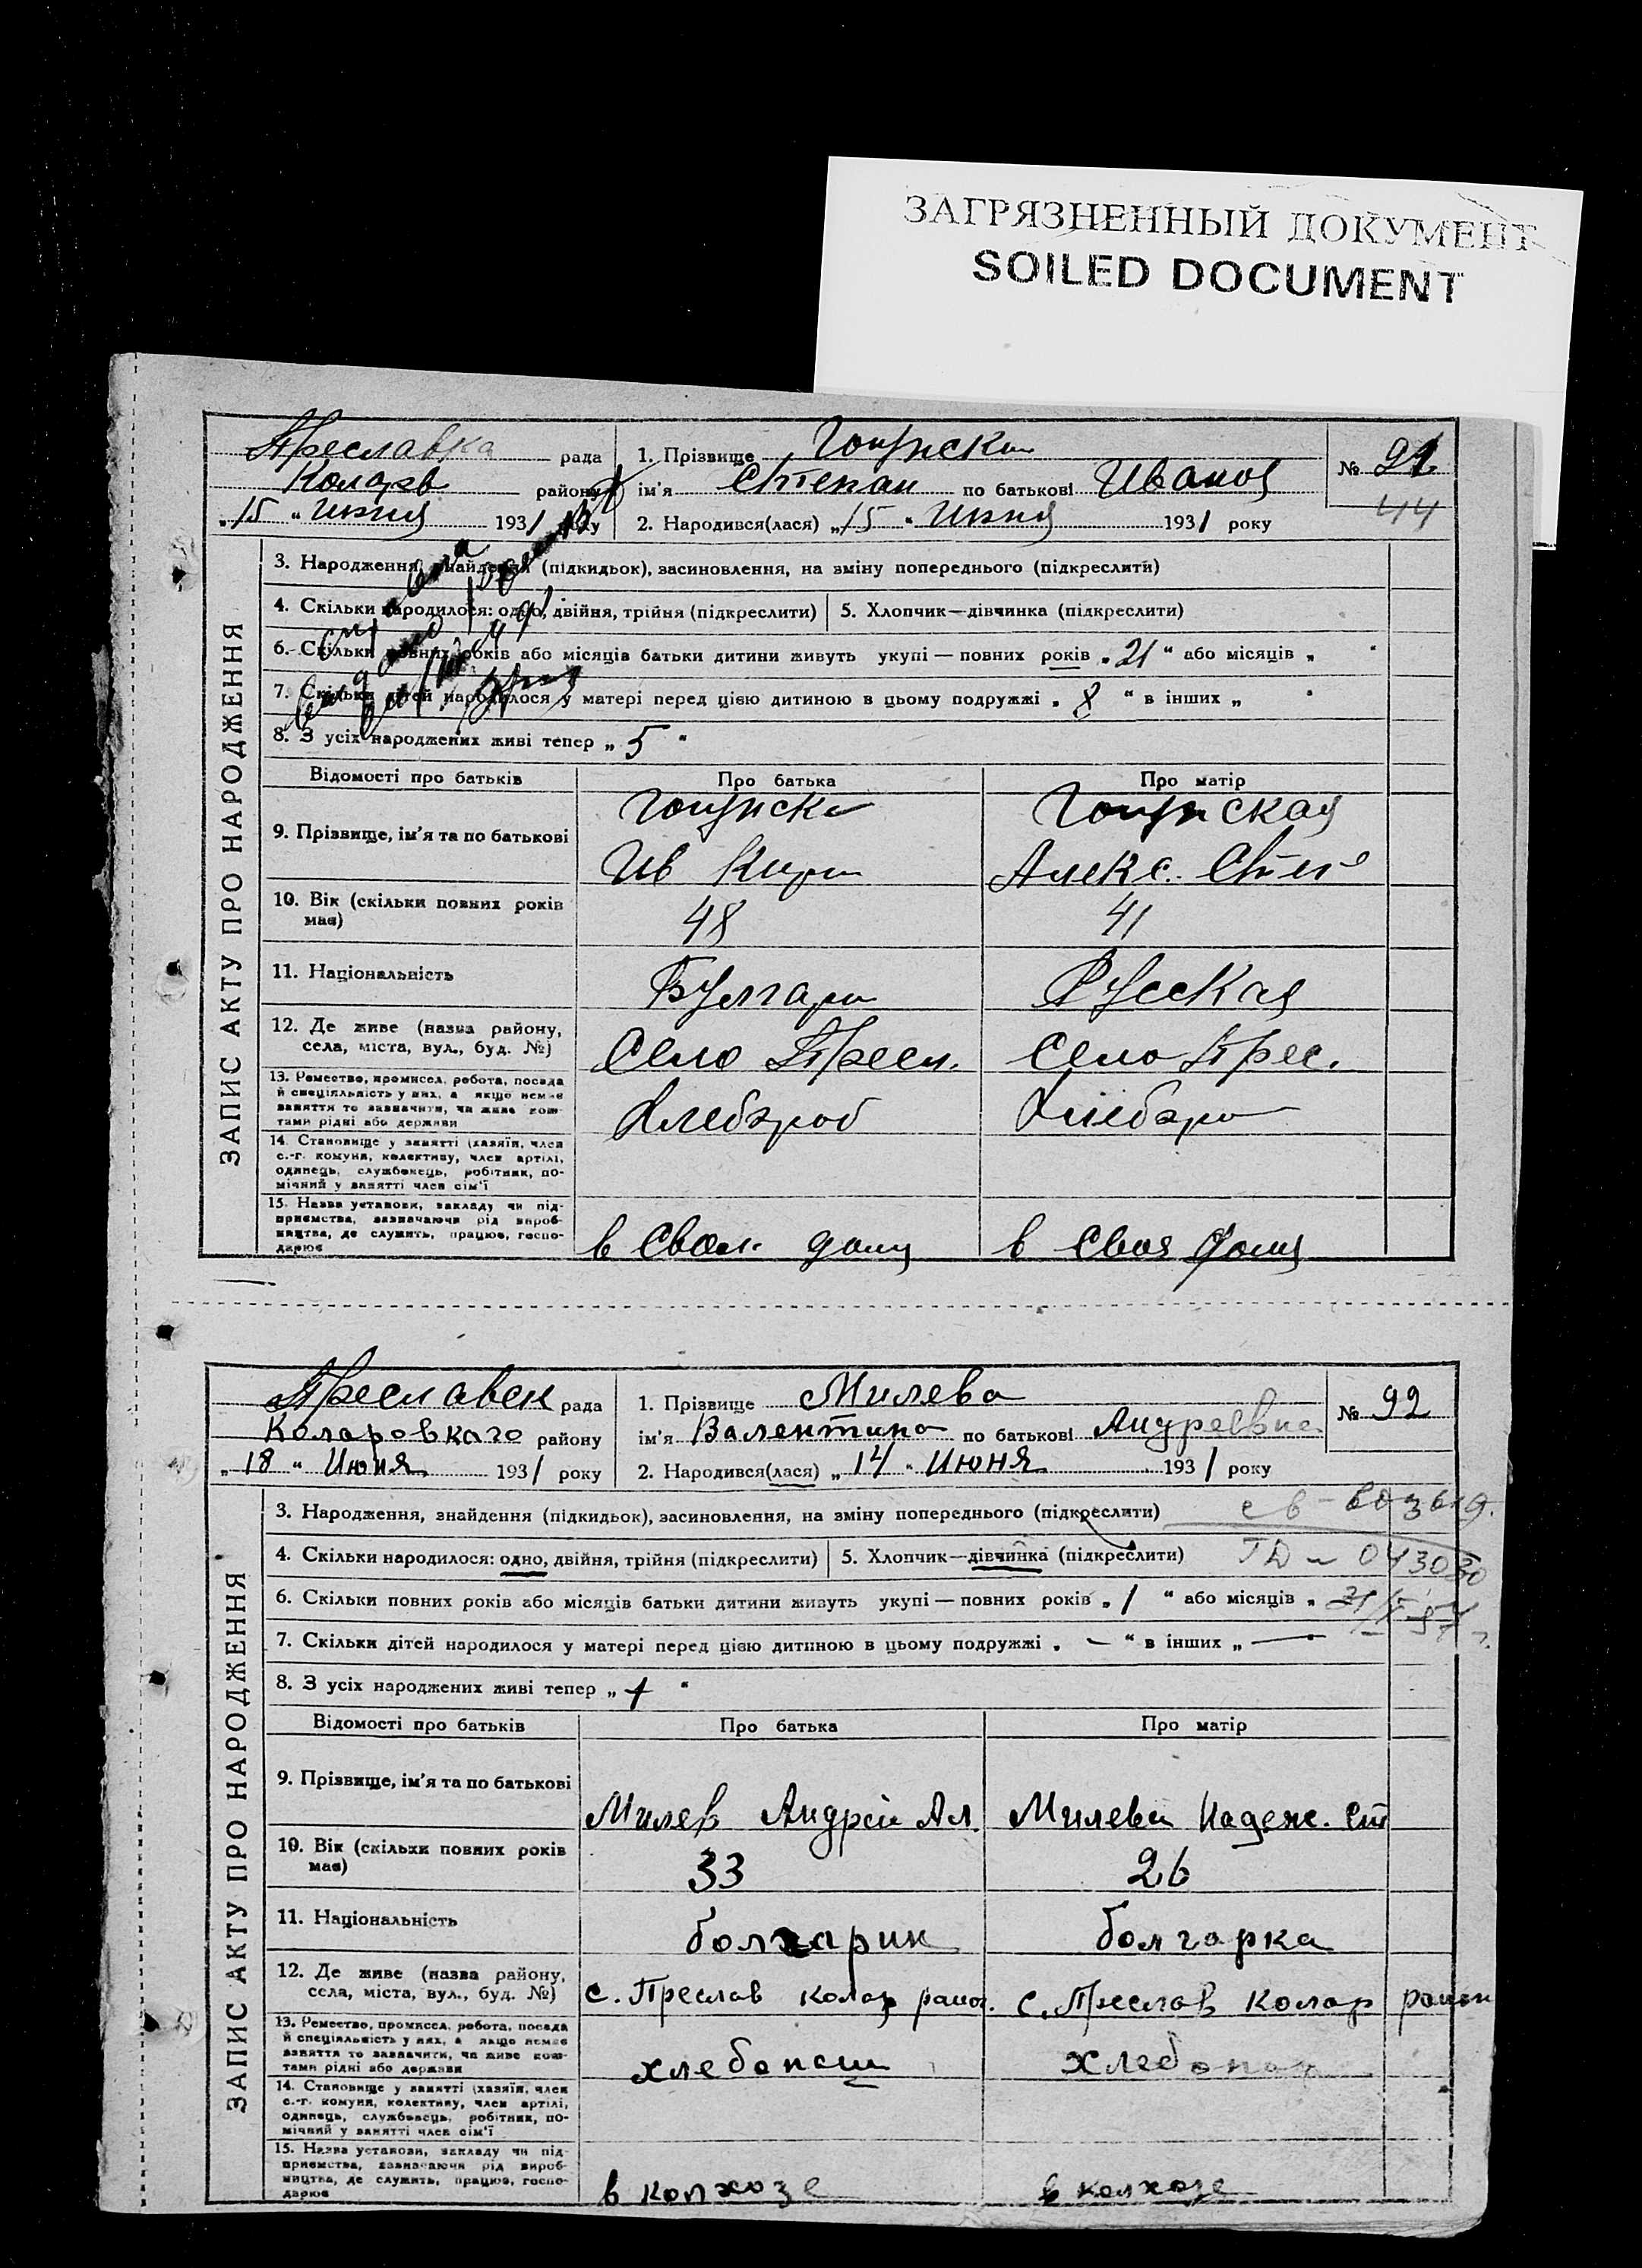 ЗАГРЯЗНЕННЫЙ ДОКУМЕНТ
SOILED DOCUMENT
Преславка рада
Коларв району
„15 “ июня 1931 року
1. Прізвище
ім'я Степан по батькові Иванов
2. Народився(лася) „15 “ Июня 1931 року
№ 91
44
ЗАПИС АКТУ ПРО НАРОДЖЕННЯ
3. Народження, знайдення (підкидьок), засиновлення, на зміну попереднього (підкреслити)
4. Скільки народилося: одно, двійня, трійня (підкреслити) 5. Хлопчик—дівчинка (підкреслити)
6. Скільки повних років або місяців батьки дитини живуть укупі — повних років „21 “ або місяців „ “
7. Скільки дітей народилося у матері перед цією дитиною в цьому подружжі „ 8 “ в інших „ “
8. З усіх народжених живі тепер „ 5 “
Відомості про батьків Про батька Про матір
9. Прізвище, ім'я та по батькові
Ив Кири Алекс. Степ
10. Вік (скільки повних років має) 48 41
11. Національність Булгари Русская
12. Де живе (назва району, села, міста, вул., буд. №) Село Пресл. Село Прес.
13. Ремество, промисел, робота, посада
й спеціяльність у них, а якщо немає
заняття то зазначити, чи живе кош-
тами рідні або держави
Хлебороб Хлеборо
14. Становище у занятті (хазяїн, член
с.-г. комуни, колективу, член артілі,
одинець, службовець, робітник, по-
мічний у занятті член сім'ї
15. Назва установи, закладу чи під-
приємства, зазначаючи рід вироб-
ництва, де служить, працює, госпо-
дарює
в Своем дому в Своя дому
Преславск рада
Коларовкаго району
„ 18 “ Июня 1931 року
1. Прізвище Милева
ім'я Валентина по батькові Андреевна
2. Народився(лася) „ 14 “ Июня 1931 року
№ 92
ЗАПИС АКТУ ПРО НАРОДЖЕННЯ
3. Народження, знайдення (підкидьок), засиновлення, на зміну попереднього (підкреслити)
4. Скільки народилося: одно, двійня, трійня (підкреслити) 5. Хлопчик—дівчинка (підкреслити)
6. Скільки повних років або місяців батьки дитини живуть укупі — повних років „ 1 “ або місяців „
7. Скільки дітей народилося у матері перед цією дитиною в цьому подружжі „ — “ в інших „ — “
8. З усіх народжених живі тепер „ 1 “
Відомості про батьків Про батька Про матір
9. Прізвище, ім'я та по батькові
Милев Андрей Ал. Милева Надеж. Ст
10. Вік (скільки повних років має) 33 26
11. Національність болгарин болгарка
12. Де живе (назва району, села, міста, вул., буд. №) с. Преслав колар район. с. Преслав Колар район
13. Ремество, промисел, робота, посада
й спеціяльність у них, а якщо немає
заняття то зазначити, чи живе кош-
тами рідні або держави
хлебопаш хлебопаш
14. Становище у занятті (хазяїн, член
с.-г. комуни, колективу, член артілі,
одинець, службовець, робітник, по-
мічний у занятті член сім'ї
15. Назва установи, закладу чи під-
приємства, зазначаючи рід вироб-
ництва, де служить, працює, госпо-
дарює
в колхозе в колхозе